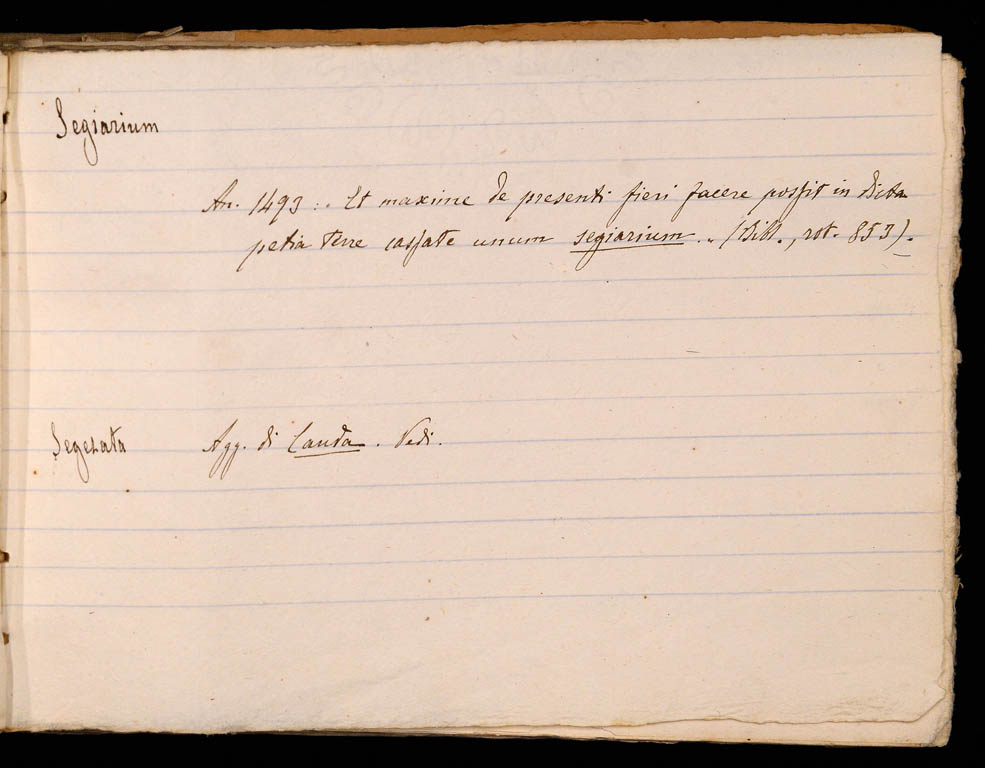 Segiarium
An. 1493: „ Et maxime de presenti fieri facere possit in dicta
petia terre cassate unum segiarium. „ (Bibl., rot. 853).
Segezata Agg. di Cauda. Vedi.